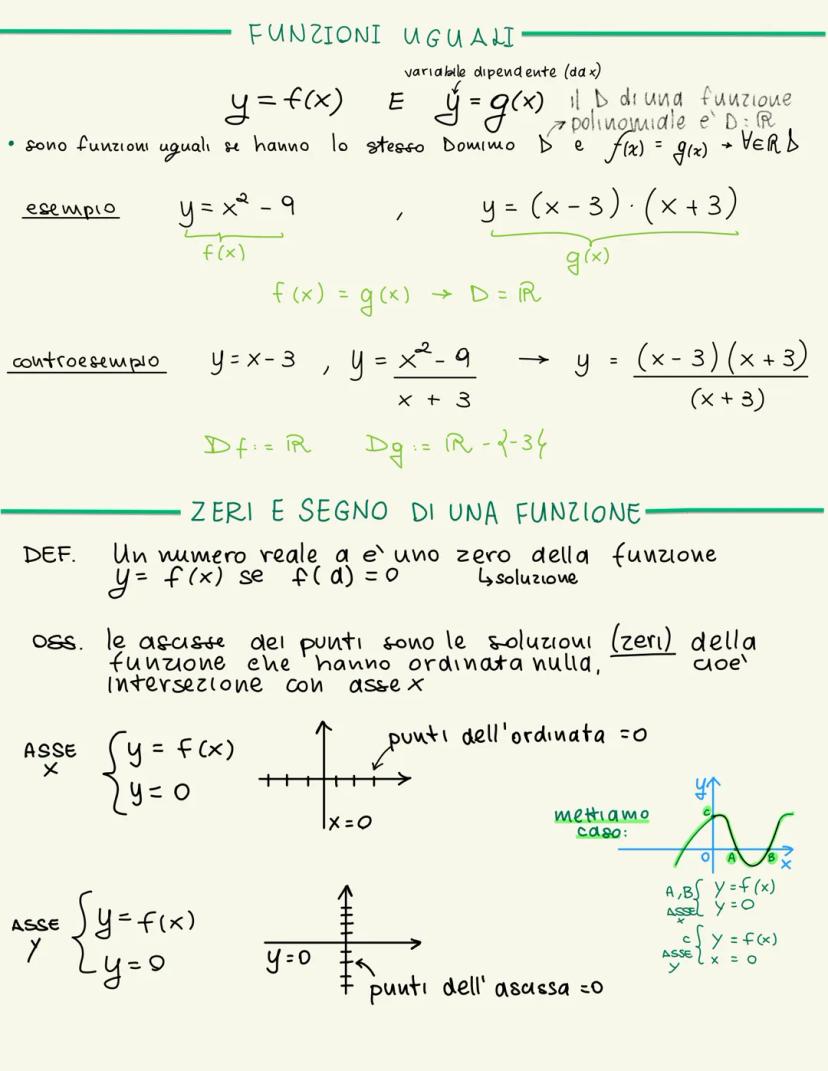 FUNZIONI UGUALI
variabile dipendente (da x)
y = f(x) E y = g(x) il D di una funzione
polinomiale e' D: ℝ
• sono funzioni uguali se hanno lo stesso Dominio D e f(x) = g(x) → ∀∈ℝ D
esempio y = x² - 9 , y = (x - 3) · (x + 3)
f(x) g(x)
f(x) = g(x) → D = ℝ
controesempio y = x - 3 , y = x² - 9 / x + 3 → y = (x - 3)(x + 3) / (x + 3)
Df := ℝ Dg := ℝ - {-3}
ZERI E SEGNO DI UNA FUNZIONE
DEF. Un numero reale a e' uno zero della funzione
y = f(x) se f(a) = 0 ↳ soluzione
OSS. le ascisse dei punti sono le soluzioni (zeri) della
funzione che hanno ordinata nulla, cioe'
intersezione con asse x
ASSE x { y = f(x)
y = 0
punti dell'ordinata = 0
x = 0
mettiamo
caso:
y
C
0 A B x
A, B { y = f(x)
ASSE x y = 0
C { y = f(x)
ASSE y x = 0
ASSE y { y = f(x)
y = 0
y = 0
punti dell'ascissa = 0